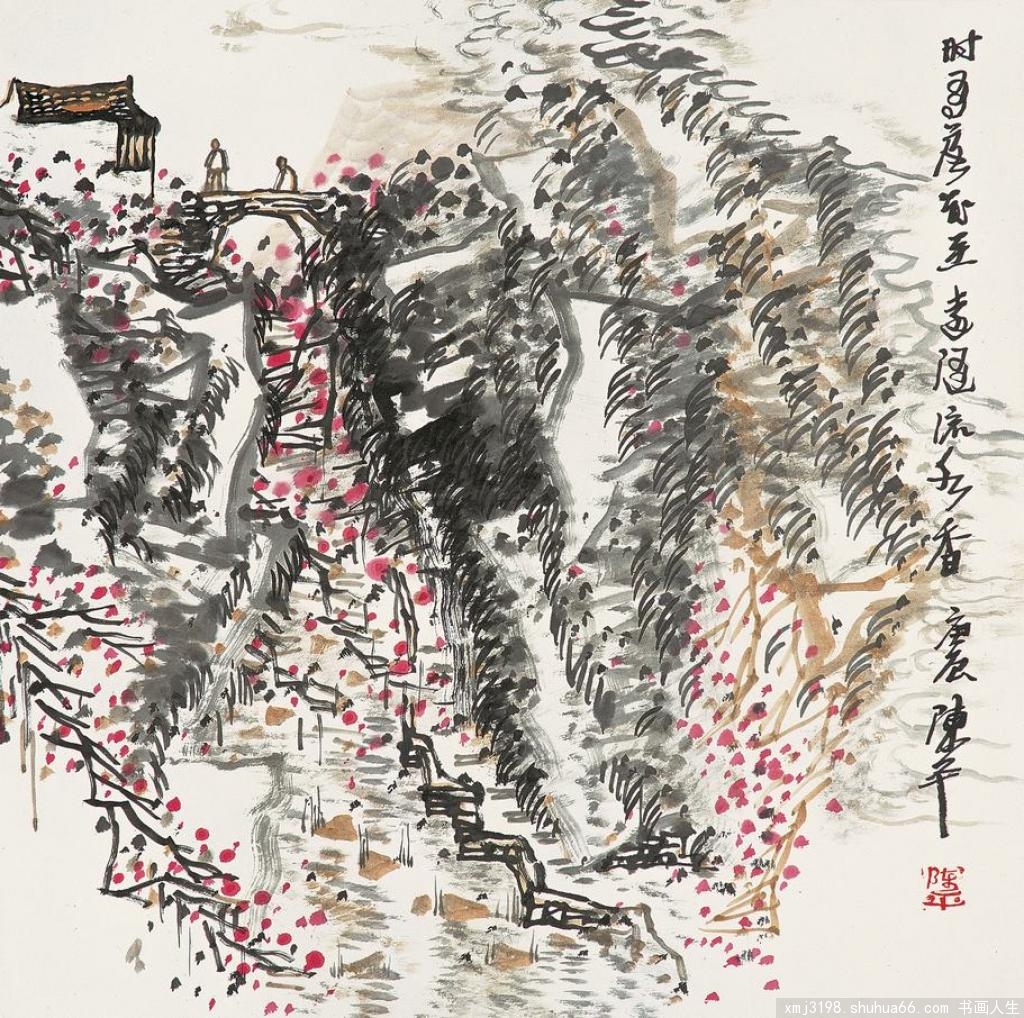 时有落花至 远随流水香 庚辰 陈平
陈平
xmj3198.shuhua66.com 书画人生